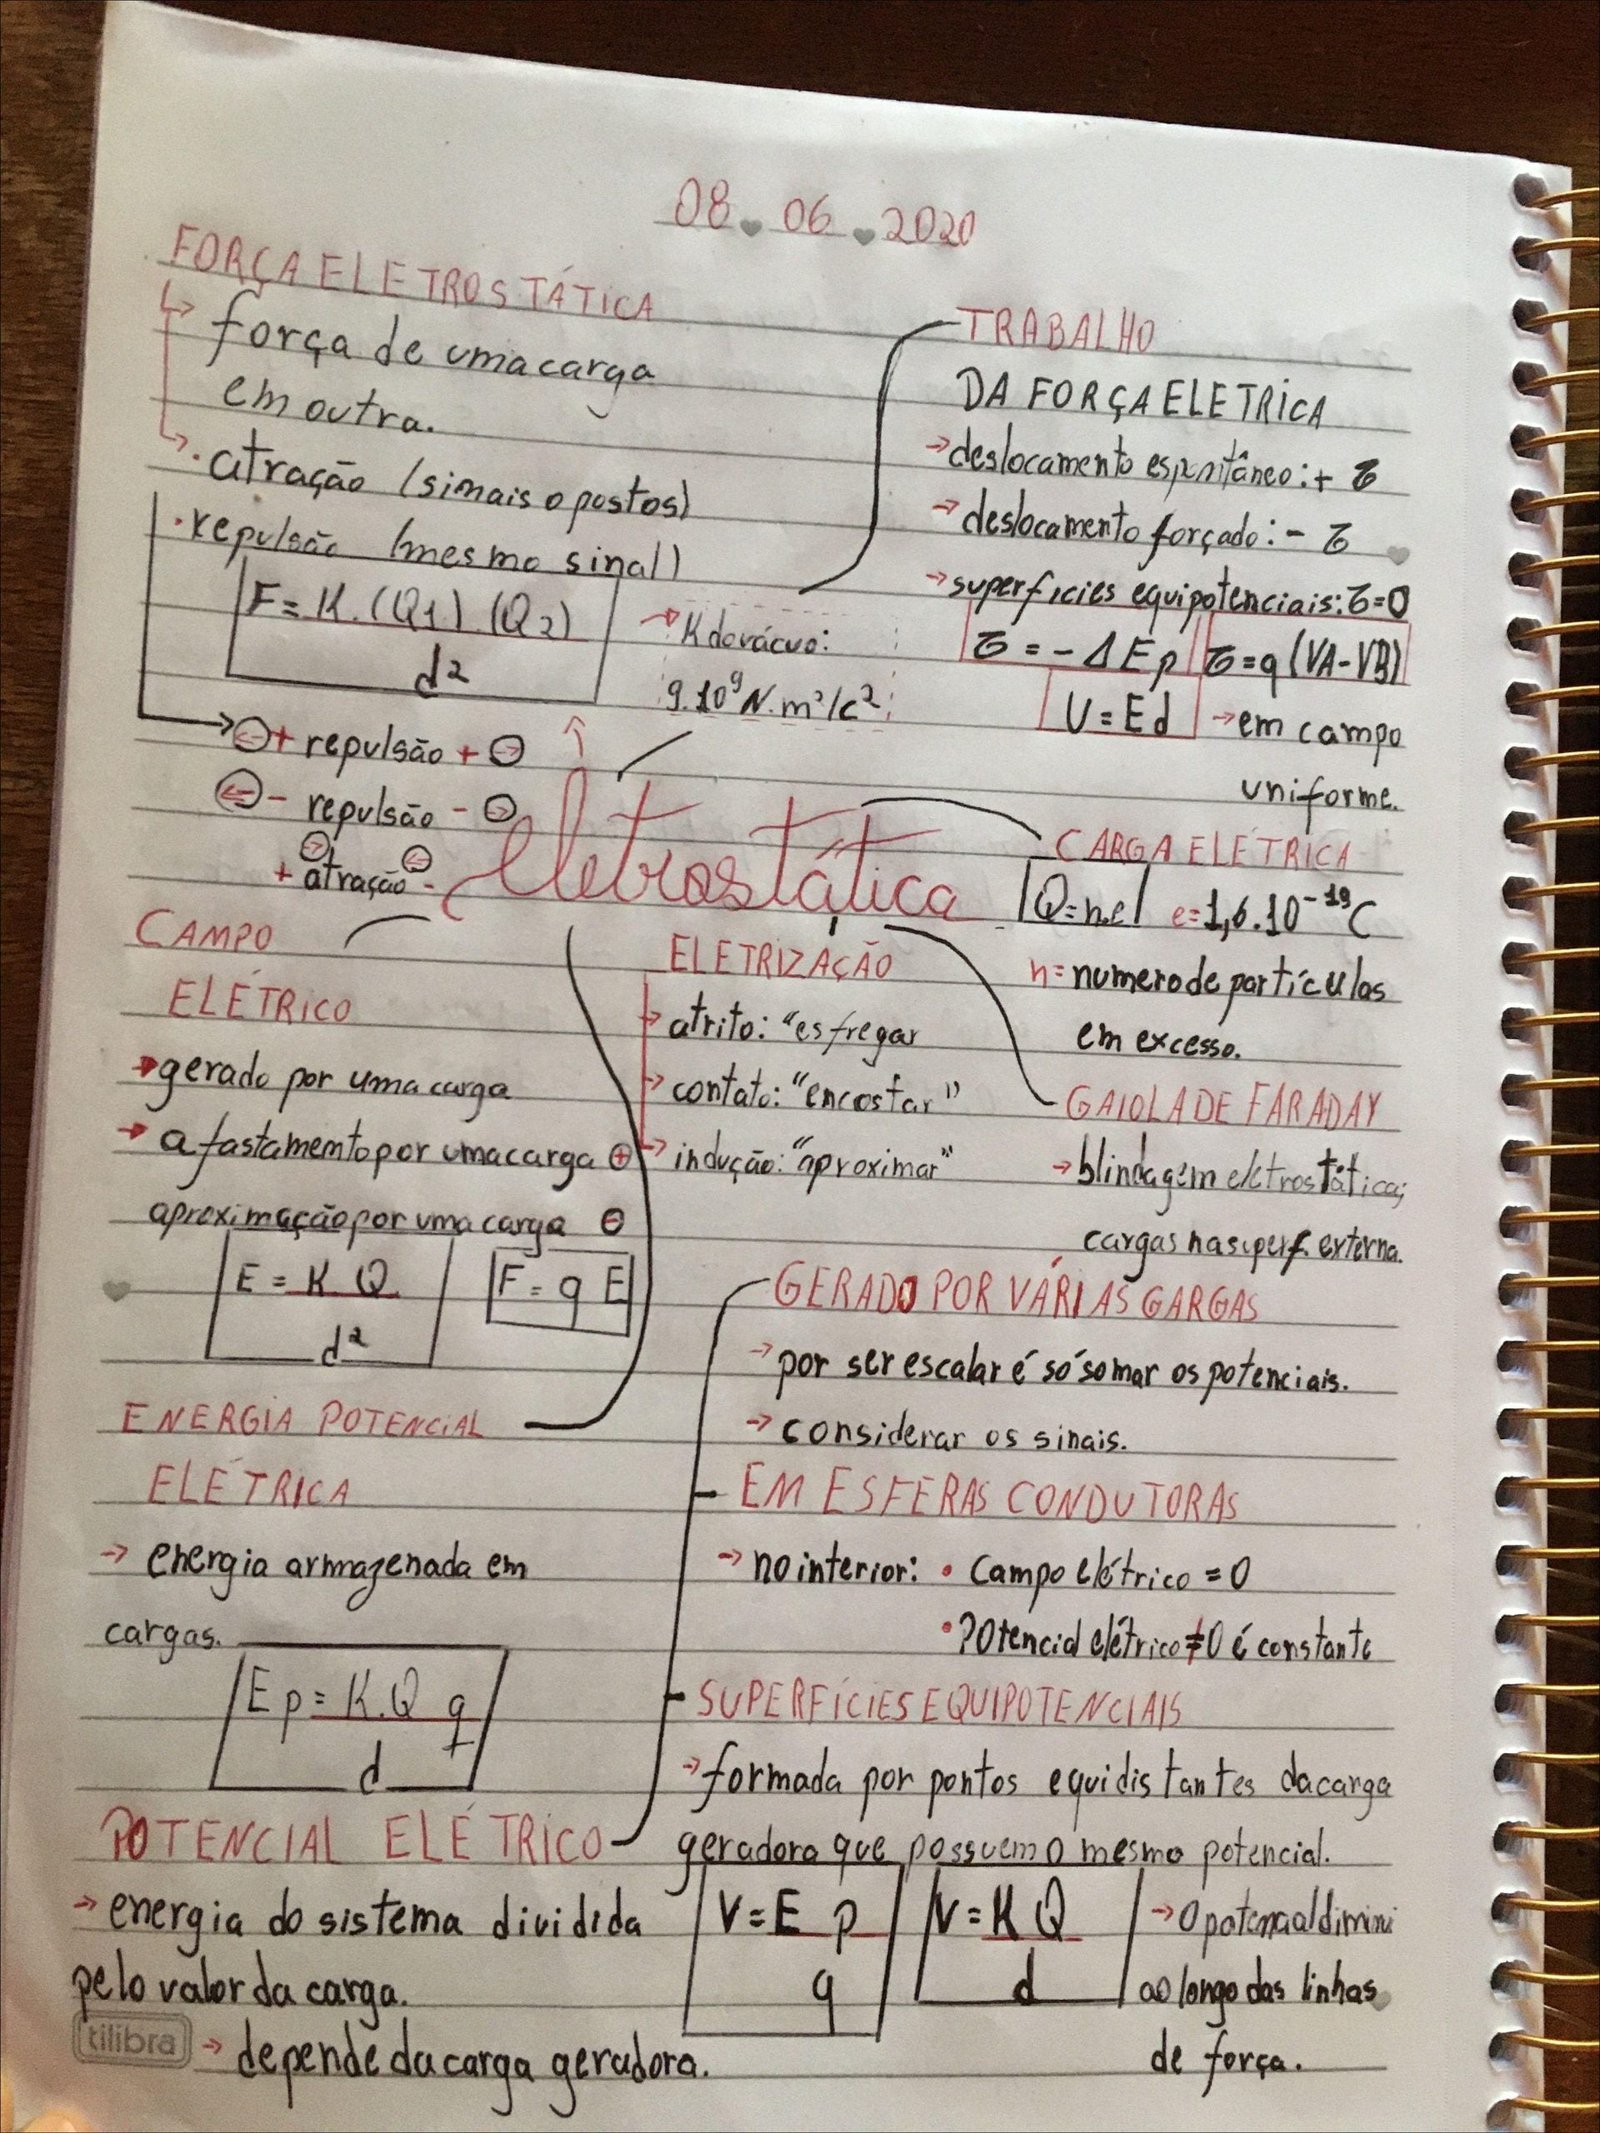 08.06.2020
FORÇA ELETROSTÁTICA
↳ força de uma carga
em outra.
↳ • atração (sinais opostos)
• repulsão (mesmo sinal)
F = K.(Q1) (Q2)
d²
→ K do vácuo:
9.10⁹ N.m²/c²
→ ⊖ + repulsão + ⊖
⊖ - repulsão - ⊖
+ atração -
TRABALHO
DA FORÇA ELETRICA
→ deslocamento espontâneo: + 𝜏
→ deslocamento forçado: - 𝜏
→ superfícies equipotenciais: 𝜏=0
𝜏 = - Δ Ep 𝜏 = q (VA-VB)
U = Ed → em campo
uniforme.
eletrostática
CARGA ELÉTRICA
Q = n.e e = 1,6.10⁻¹⁹C
n = numero de partículas
em excesso.
CAMPO
ELÉTRICO
→ gerado por uma carga
→ afastamento por uma carga ⊕
aproximação por uma carga ⊖
E = K Q
d²
F = q E
ELETRIZAÇÃO
→ atrito: "esfregar
→ contato: "encostar"
→ indução: "aproximar"
GAIOLA DE FARADAY
→ blindagem eletrostática;
cargas na superf. externa.
ENERGIA POTENCIAL
ELÉTRICA
→ energia armazenada em
cargas.
Ep = K.Q q
d
GERADO POR VÁRIAS GARGAS
→ por ser escalar é só somar os potenciais.
→ considerar os sinais.
EM ESFERAS CONDUTORAS
→ no interior: • Campo elétrico = 0
• Potencial elétrico ≠ 0 é constante
SUPERFÍCIES EQUIPOTENCIAIS
→ formada por pontos equidistantes da carga
geradora que possuem o mesmo potencial.
POTENCIAL ELÉTRICO
→ energia do sistema dividida
pelo valor da carga.
→ depende da carga geradora.
V = E p
q
V = K Q
d
→ O potencial diminui
ao longo das linhas
de força.
tilibra